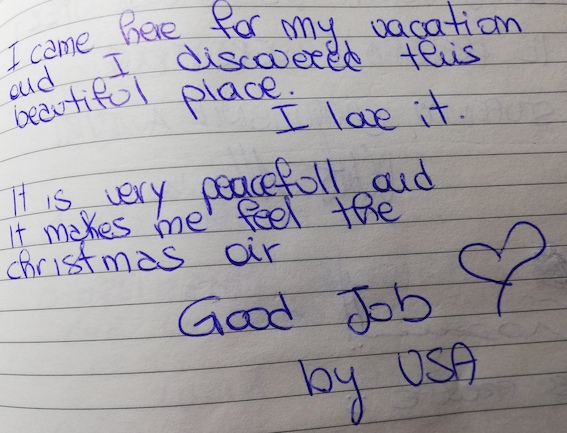 I came here for my vacation
and I discovered this
beautiful place.
I love it.
It is very peacefull and
it makes me feel the
christmas air
Good Job
by USA